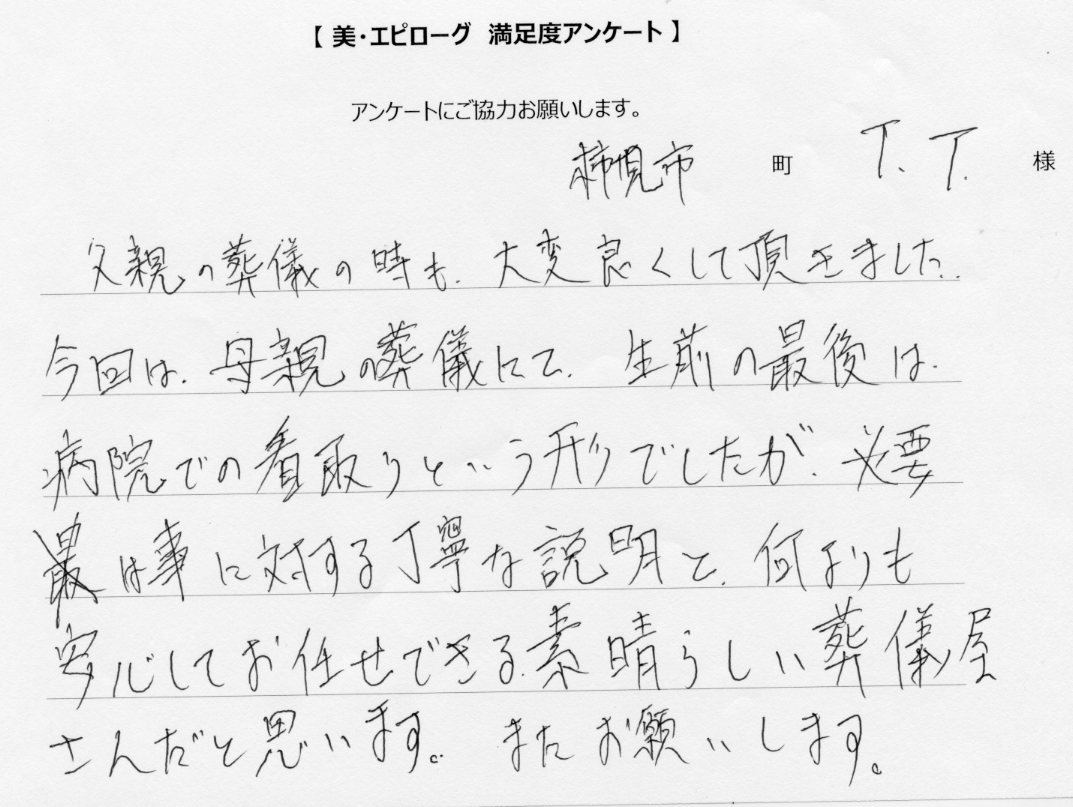 【 美・エピローグ 満足度アンケート 】
アンケートにご協力お願いします。
市 町 T. T. 様
父親の葬儀の時も、大変良くして頂きました。
今回は、母親の葬儀にて、生前の最後は、
病院での看取りという形でしたが、必要
は事に対する丁寧な説明と、何よりも
安心してお任せできる素晴らしい葬儀屋
さんだと思います。またお願いします。